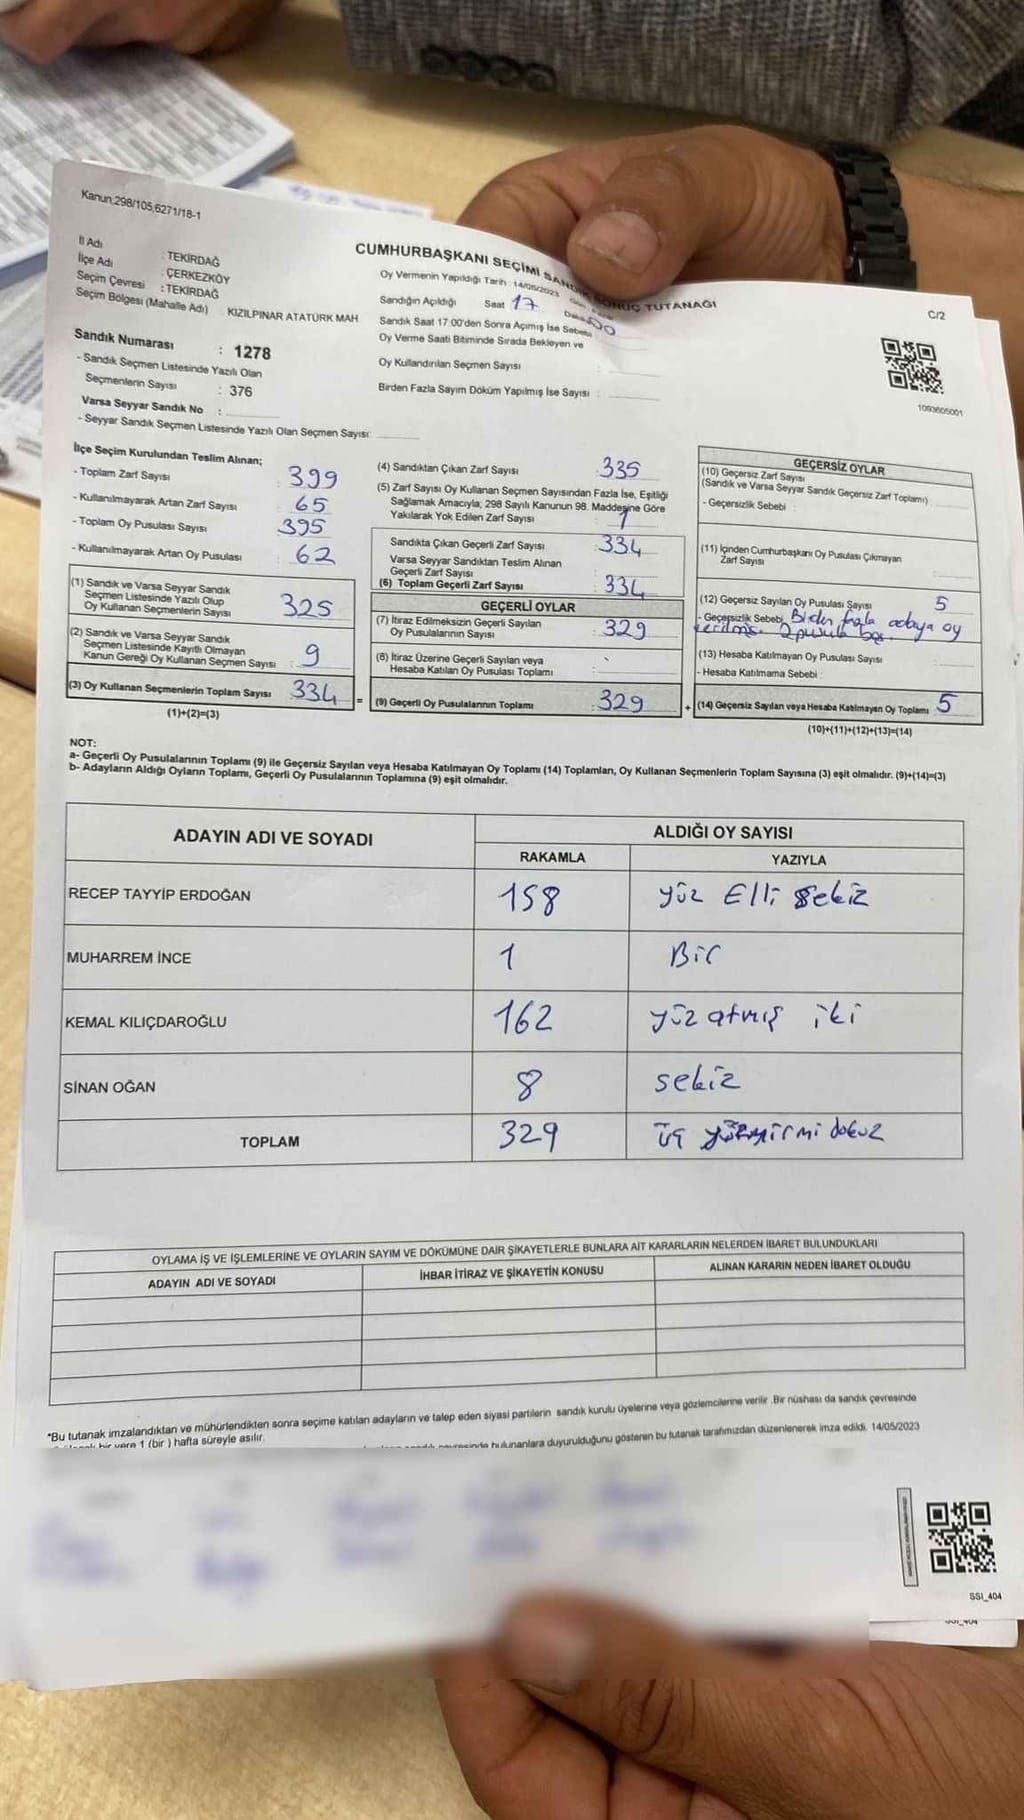 Kanun;298/105,6271/18-1
CUMHURBAŞKANI SEÇİMİ SANDIK SONUÇ TUTANAĞI
C/2
İl Adı : TEKİRDAĞ
İlçe Adı : ÇERKEZKÖY
Seçim Çevresi : TEKİRDAĞ
Seçim Bölgesi (Mahalle Adı) KIZILPINAR ATATÜRK MAH.
Sandık Numarası : 1278
- Sandık Seçmen Listesinde Yazılı Olan
Seçmenlerin Sayısı : 376
Varsa Seyyar Sandık No :
- Seyyar Sandık Seçmen Listesinde Yazılı Olan Seçmen Sayısı:
Oy Vermenin Yapıldığı Tarih 14/05/2023
Sandığın Açıldığı Saat 17 Dakika 00
Sandık Saat 17:00'den Sonra Açımış İse Sebebi
Oy Verme Saati Bitiminde Sırada Bekleyen ve
Oy Kullandırılan Seçmen Sayısı :
Birden Fazla Sayım Döküm Yapılmış İse Sayısı :
1093605001
İlçe Seçim Kurulundan Teslim Alınan;
- Toplam Zarf Sayısı : 399
- Kullanılmayarak Artan Zarf Sayısı : 65
- Toplam Oy Pusulası Sayısı : 395
- Kullanılmayarak Artan Oy Pusulası : 62
(1) Sandık ve Varsa Seyyar Sandık
Seçmen Listesinde Yazılı Olup
Oy Kullanan Seçmenlerin Sayısı : 325
(2) Sandık ve Varsa Seyyar Sandık
Seçmen Listesinde Kayıtlı Olmayan
Kanun Gereği Oy Kullanan Seçmen Sayısı : 9
(3) Oy Kullanan Seçmenlerin Toplam Sayısı 334 =
(1)+(2)=(3)
(4) Sandıktan Çıkan Zarf Sayısı : 335
(5) Zarf Sayısı Oy Kullanan Seçmen Sayısından Fazla İse, Eşitliği
Sağlamak Amacıyla; 298 Sayılı Kanunun 98. Maddesine Göre
Yakılarak Yok Edilen Zarf Sayısı : 1
Sandıkta Çıkan Geçerli Zarf Sayısı : 334
Varsa Seyyar Sandıktan Teslim Alınan
Geçerli Zarf Sayısı :
(6) Toplam Geçerli Zarf Sayısı : 334
GEÇERLİ OYLAR
(7) İtiraz Edilmeksizin Geçerli Sayılan
Oy Pusulalarının Sayısı : 329
(8) İtiraz Üzerine Geçerli Sayılan veya
Hesaba Katılan Oy Pusulası Toplamı :
(9) Geçerli Oy Pusulalarının Toplamı : 329 +
GEÇERSİZ OYLAR
(10) Geçersiz Zarf Sayısı
(Sandık ve Varsa Seyyar Sandık Geçersiz Zarf Toplamı)
- Geçersizlik Sebebi :
(11) İçinden Cumhurbaşkanı Oy Pusulası Çıkmayan
Zarf Sayısı
(12) Geçersiz Sayılan Oy Pusulası Sayısı 5
- Geçersizlik Sebebi Birden fazla adaya oy
verilmiş. 2 pusula boş
(13) Hesaba Katılmayan Oy Pusulası Sayısı
- Hesaba Katılmama Sebebi :
(14) Geçersiz Sayılan veya Hesaba Katılmayan Oy Toplamı 5
(10)+(11)+(12)+(13)=(14)
NOT:
a- Geçerli Oy Pusulalarının Toplamı (9) ile Geçersiz Sayılan veya Hesaba Katılmayan Oy Toplamı (14) Toplamları, Oy Kullanan Seçmenlerin Toplam Sayısına (3) eşit olmalıdır. (9)+(14)=(3)
b- Adayların Aldığı Oyların Toplamı, Geçerli Oy Pusulalarının Toplamına (9) eşit olmalıdır.
ADAYIN ADI VE SOYADI ALDIĞI OY SAYISI
RAKAMLA YAZIYLA
RECEP TAYYİP ERDOĞAN 158 yüz Elli sekiz
MUHARREM İNCE 1 Bir
KEMAL KILIÇDAROĞLU 162 yüz atmış iki
SİNAN OĞAN 8 sekiz
TOPLAM 329 üç yüzyirmi dokuz
OYLAMA İŞ VE İŞLEMLERİNE VE OYLARIN SAYIM VE DÖKÜMÜNE DAİR ŞİKAYETLERLE BUNLARA AİT KARARLARIN NELERDEN İBARET BULUNDUKLARI
ADAYIN ADI VE SOYADI İHBAR İTİRAZ VE ŞİKAYETİN KONUSU ALINAN KARARIN NEDEN İBARET OLDUĞU
*Bu tutanak imzalandıktan ve mühürlendikten sonra seçime katılan adayların ve talep eden siyasi partilerin sandık kurulu üyelerine veya gözlemcilerine verilir .Bir nüshası da sandık çevresinde
bir yere 1 (bir ) hafta süreyle asılır.
bulunanlara duyurulduğunu gösteren bu tutanak tarafımızdan düzenlenerek imza edildi. 14/05/2023
SSI_404